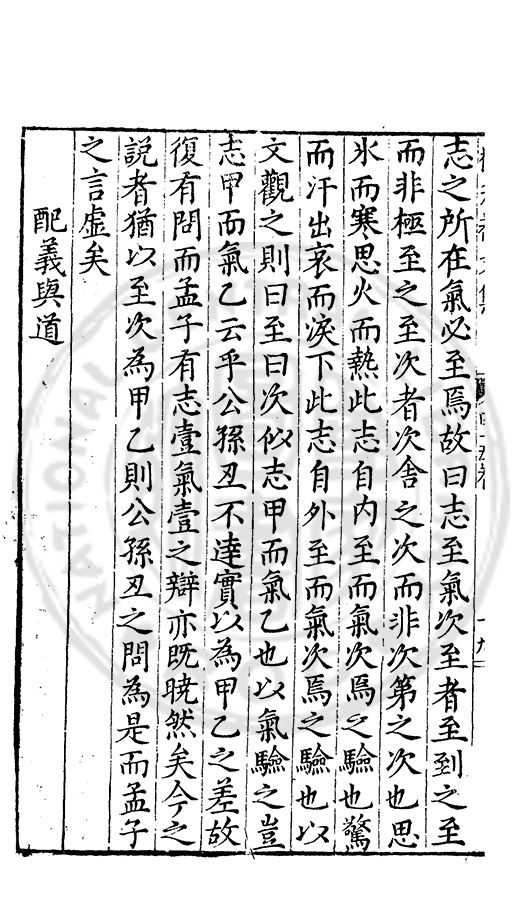 志之所在氣必至焉故曰志至氣次至者至到之至
而非極至之至次者次舍之次而非次第之次也思
氷而寒思火而熱此志自内至而氣次焉之驗也驚
而汗出哀而淚下此志自外至而氣次焉之驗也以
文觀之則曰至曰次似志甲而氣乙也以氣驗之豈
志甲而氣乙云乎公孫丑不達實以為甲乙之差故
復有問而孟子有志壹氣壹之辯亦既曉然矣今之
說者猶以至次為甲乙則公孫丑之問為是而孟子
之言虛矣
配義與道